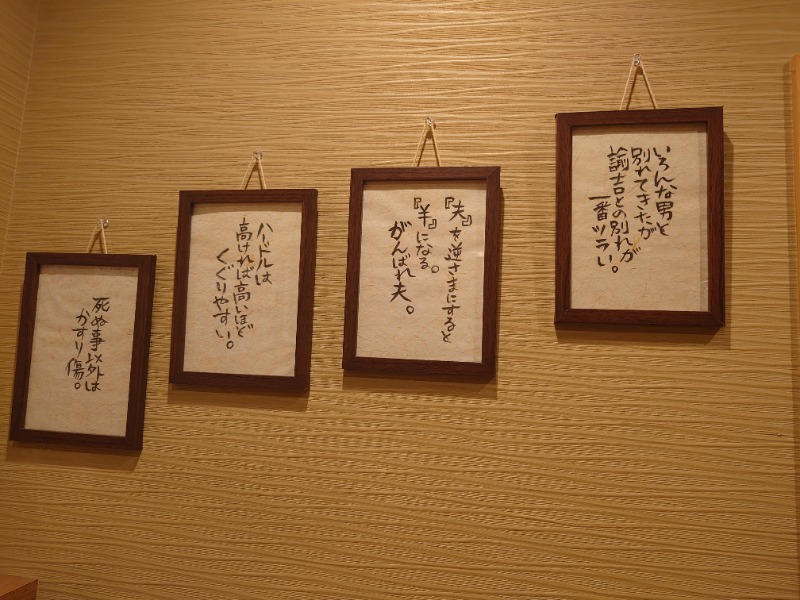 いろんな男と
別れてきたが
諭吉との別れが
一番ツラい。
『夫』を逆さまにすると
『¥』になる。
がんばれ夫。
ハードルは
高ければ高いほど
くぐりやすい。
死ぬ事以外は
かすり傷。